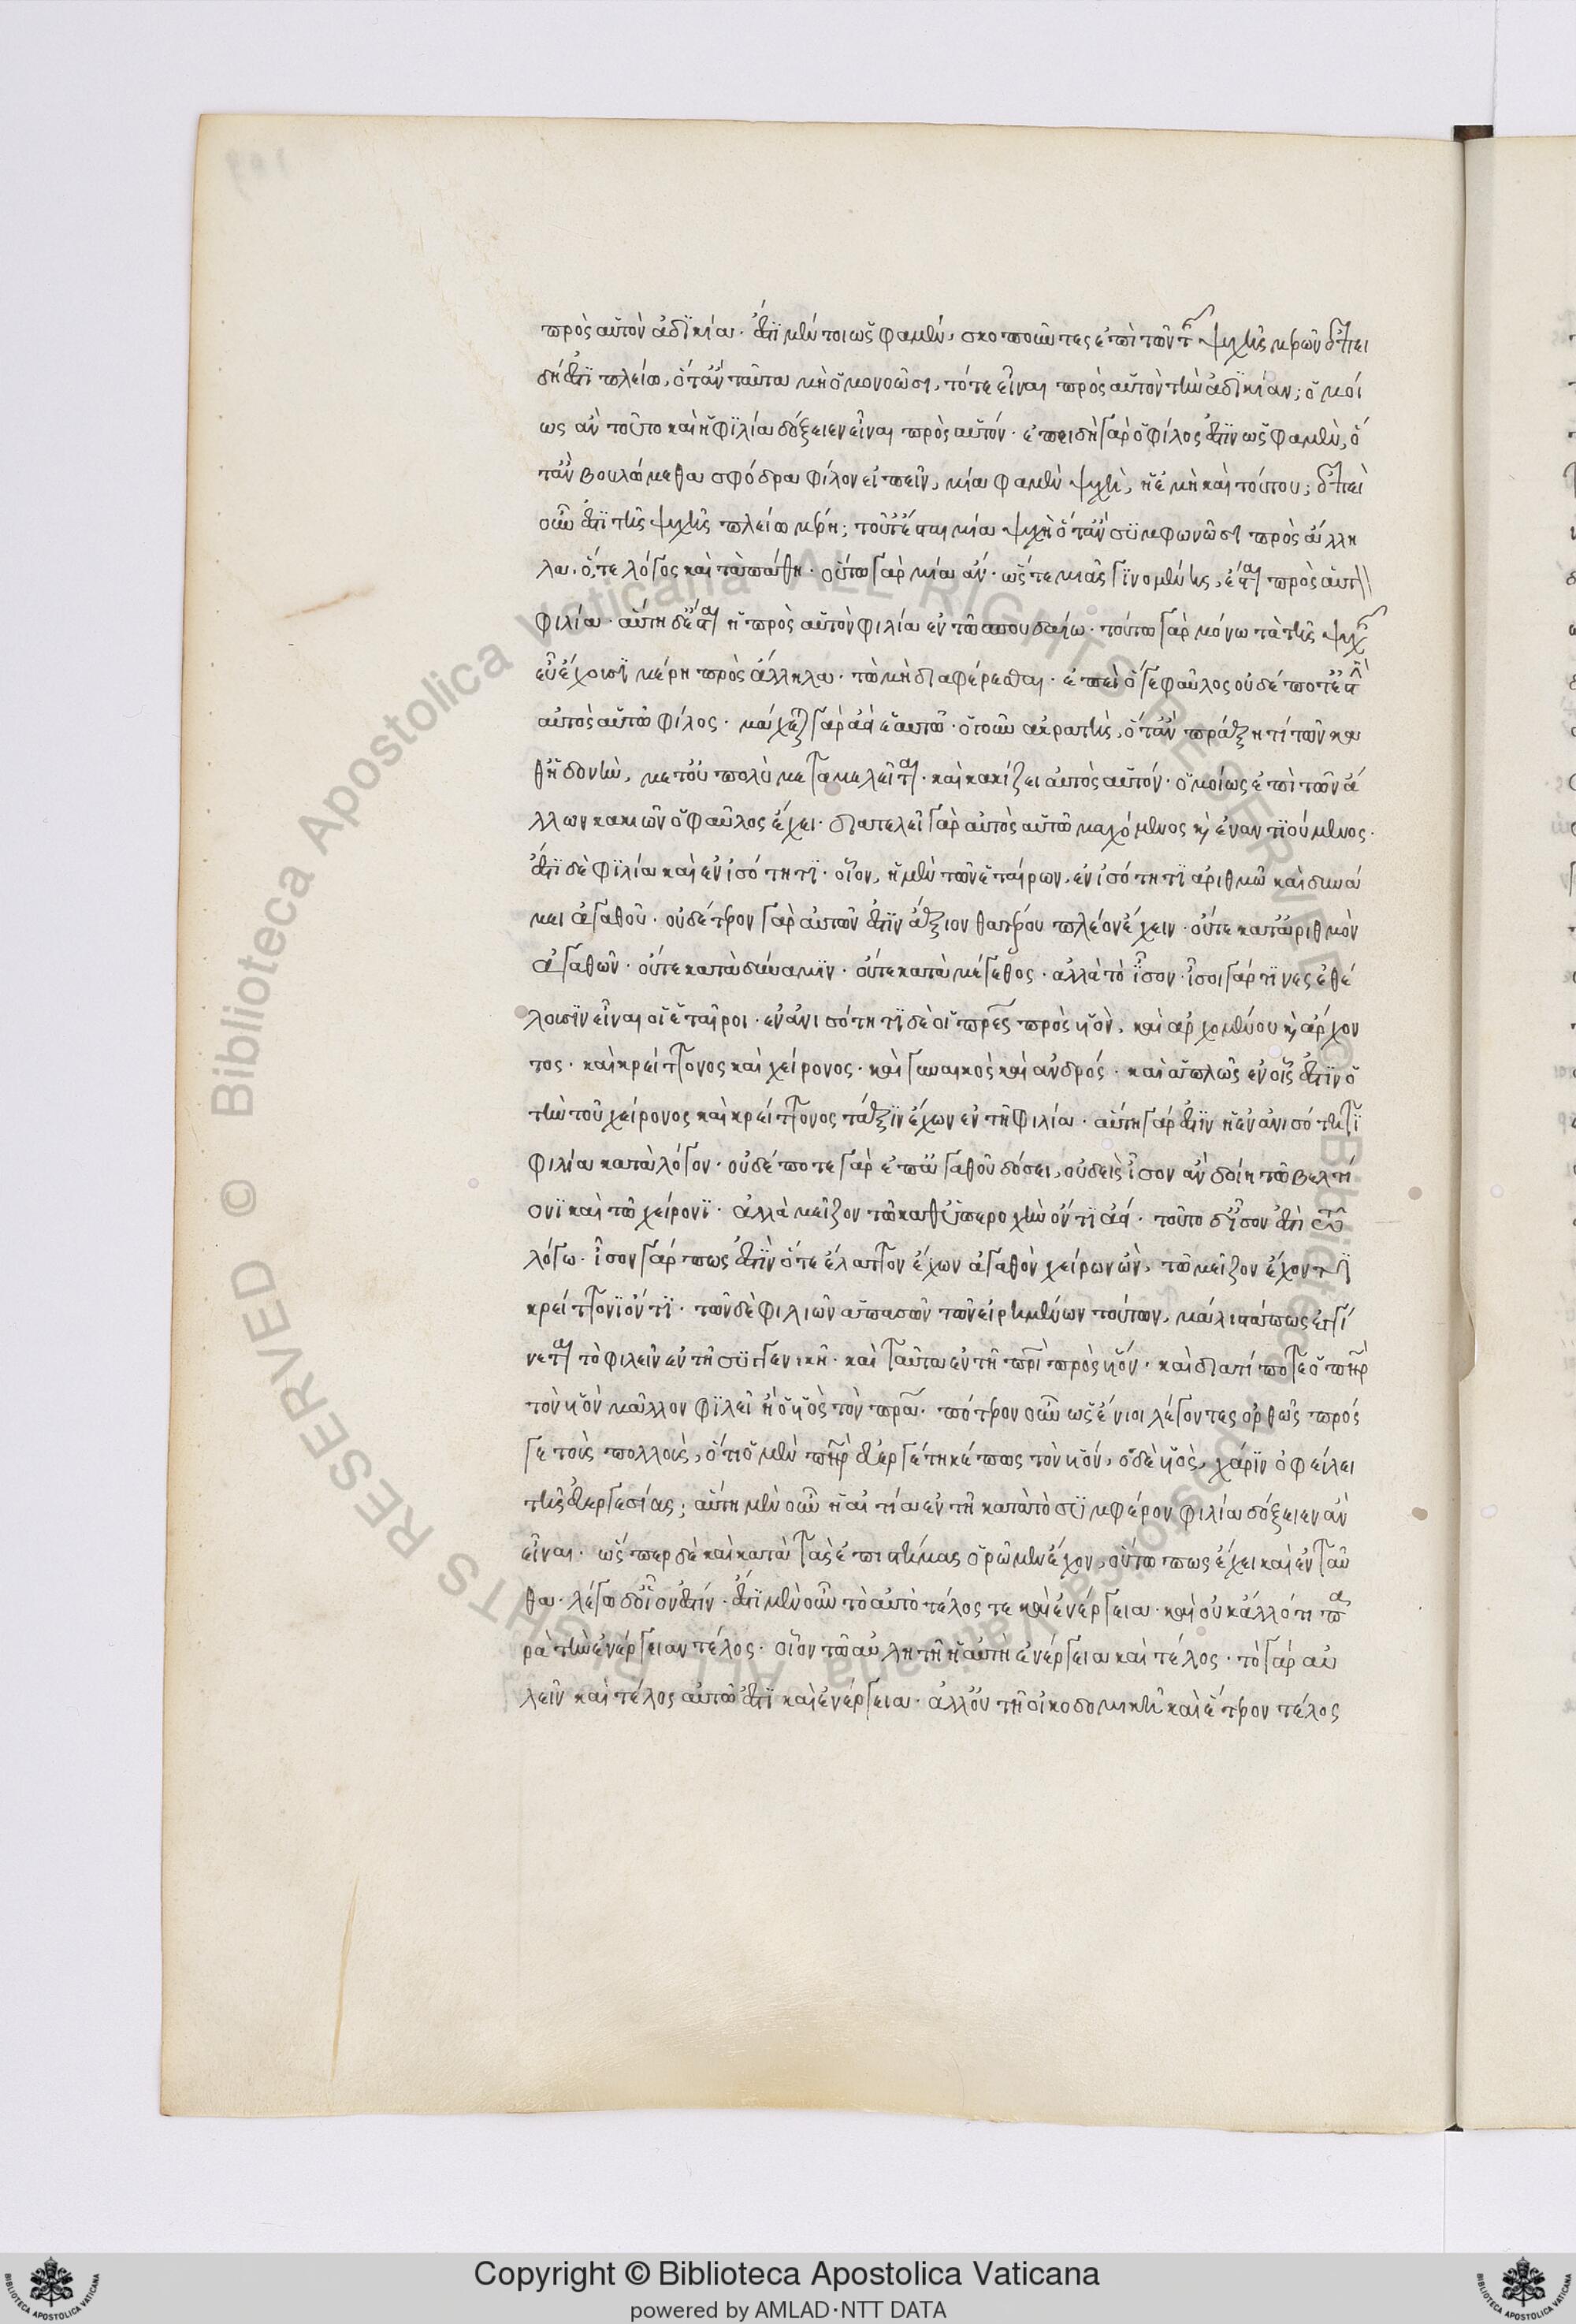 πρὸς αὑτὸν ἀδικία. ἔστι μέν τοι ὥς φαμεν, σκοποῦντες ἐπὶ τῶν τῆς ψυχῆς μερῶν ὅτι ἐπει
δή ἐστι πλείω, ὅταν ταῦτα μὴ ὁμονοῶσι, τότε εἶναι πρὸς αὑτὸν τὴν ἀδικίαν; ὁμοί
ως ἂν τοῦτο καὶ ἡ φιλία δόξειεν εἶναι πρὸς αὑτόν. ἐπειδὴ γὰρ ὁ φίλος ἐστὶν ὥς φαμεν, ὅ
ταν βουλώμεθα σφόδρα φίλον εἰπεῖν, μία φαμὲν ψυχὴ, ἡ ἐμὴ καὶ τούτου; ὅτι ἐπεὶ
οὖν ἐστι τῆς ψυχῆς πλείω μέρη; τοῦτ' ἔσται μία ψυχὴ ὅταν συμφωνῶσι πρὸς ἄλλη
λα. ὅ, τε λόγος καὶ τὰ πάθη. οὕτω γὰρ μία ἄν. ὥστε μιᾶς γινομένης, ἔσται πρὸς αὑτ
φιλία. αὕτη δ' ἔσται ἡ πρὸς αὑτὸν φιλία ἐν τῷ σπουδαίω. τούτω γὰρ μόνω τὰ τῆς ψυχῆς
εὖ ἔχουσι μέρη πρὸς ἄλληλα. τῷ μὴ διαφέρεσθαι. ἐπεὶ ὅ γε φαῦλος οὐδέποτ' ἐστὶ
αὐτὸς αὑτῷ φίλος. μάχεται γὰρ ἀεὶ ἑαυτῷ. ὁ γοῦν ἀκρατὴς, ὅταν πράξη τί τῶν κα
θ' ἡδονὴν, μετ' οὐ πολὺ μεταμελεῖται. καὶ κακίζει αὐτὸς αὑτόν. ὁμοίως ἐπὶ τῶν ἄ
λλων κακιῶν ὁ φαῦλος ἔχει. διατελεῖ γὰρ αὐτὸς αὑτῷ μαχόμενος καὶ ἐναντιούμενος.
ἔστι δὲ φιλία καὶ ἐν ἰσότητι. οἷον, ἡ μὲν τῶν ἑταίρων, ἐν ἰσότητι ἀριθμῷ καὶ δυνά
μει ἀγαθοῦ. οὐδέτερον γὰρ αὐτῶν ἐστὶν ἄξιον θατέρου πλέον ἔχειν. οὔτε κατ' ἀριθμὸν
ἀγαθῶν. οὔτε κατὰ δύναμιν. οὔτε κατὰ μέγεθος. ἀλλὰ τὸ ἴσον. ἴσοι γάρ τινες ἐθέ
λουσιν εἶναι οἱ ἑταῖροι. ἐν ἀνισότητι δὲ οἱ πρες πρὸς υἱὸν, καὶ ἀρχομένου καὶ ἄρχον
τος. καὶ κρείττονος καὶ χείρονος. καὶ γυναικὸς καὶ ἀνδρός. καὶ ἁπλῶς ἐν οἷς ἐστὶν ὁ
τὴν τοῦ χείρονος καὶ κρείττονος τάξιν ἔχων ἐν τῇ φιλία. αὕτη γάρ ἐστιν ἡ ἐν ἀνισότητι
φιλία κατὰ λόγον. οὐδέποτε γὰρ ἐπ' ἀγαθοῦ δόσει, οὐδεὶς ἴσον ἂν δοίη τῷ βελτί
ονι καὶ τῷ χείρονι. ἀλλὰ μεῖζον τῷ καθ' ὑπεροχὴν ὄντι ἀεί. τοῦτο δ' ἴσον ἐστὶ τῷ
λόγω. ἴσον γάρ πως ἐστὶν ὅ τε ἔλαττον ἔχων ἀγαθὸν χείρων ὢν, τῷ μεῖζον ἔχοντι
κρείττονι ὄντι. τῶν δὲ φιλιῶν ἁπασῶν τῶν εἰρημένων τούτων, μάλιστά πως ἐγγί
νεται τὸ φιλεῖν ἐν τῇ συγγενικῇ. καὶ ταῦτα ἐν τῇ πρὶ πρὸς υἱόν. καὶ διατί ποτε ὁ πηρ
τὸν υἱὸν μᾶλλον φιλεῖ ἢ ὁ υἱὸς τὸν πρα. πότερον οὖν ὡς ἔνιοι λέγοντες ὀρθῶς πρός
γε τοὺς πολλοὺς, ὅτι ὁ μὲν πηρ εὐεργέτηκέ πως τὸν υἱόν, ὁ δὲ υἱὸς, χάριν ὀφείλει
τῆς εὐεργεσίας; αὕτη μὲν οὖν ἡ αἰτία ἐν τῇ κατὰ τὸ συμφέρον φιλία δόξειεν ἂν
εἶναι. ὥσπερ δὲ καὶ κατὰ τὰς ἐπιστήμας ὁρῶμεν ἔχον, οὕτω πως ἔχει καὶ ἐνταῦ
θα. λέγω δ' οἷον ἐστίν. ἔστι μὲν οὖν τὸ αὐτὸ τέλος τε καὶ ἐνέργεια. καὶ οὐκ ἄλλό τι πα
ρὰ τὴν ἐνέργειαν τέλος. οἷον τῷ αὐλητῇ ἡ αὐτὴ ἐνέργεια καὶ τέλος. τὸ γὰρ αὐ
λεῖν καὶ τέλος αὐτῷ ἐστι καὶ ἐνέργεια. ἀλλ' οὐ τῇ οἰκοδομικῇ καὶ ἕτερον τέλος
Copyright © Biblioteca Apostolica Vaticana
powered by AMLAD·NTT DATA